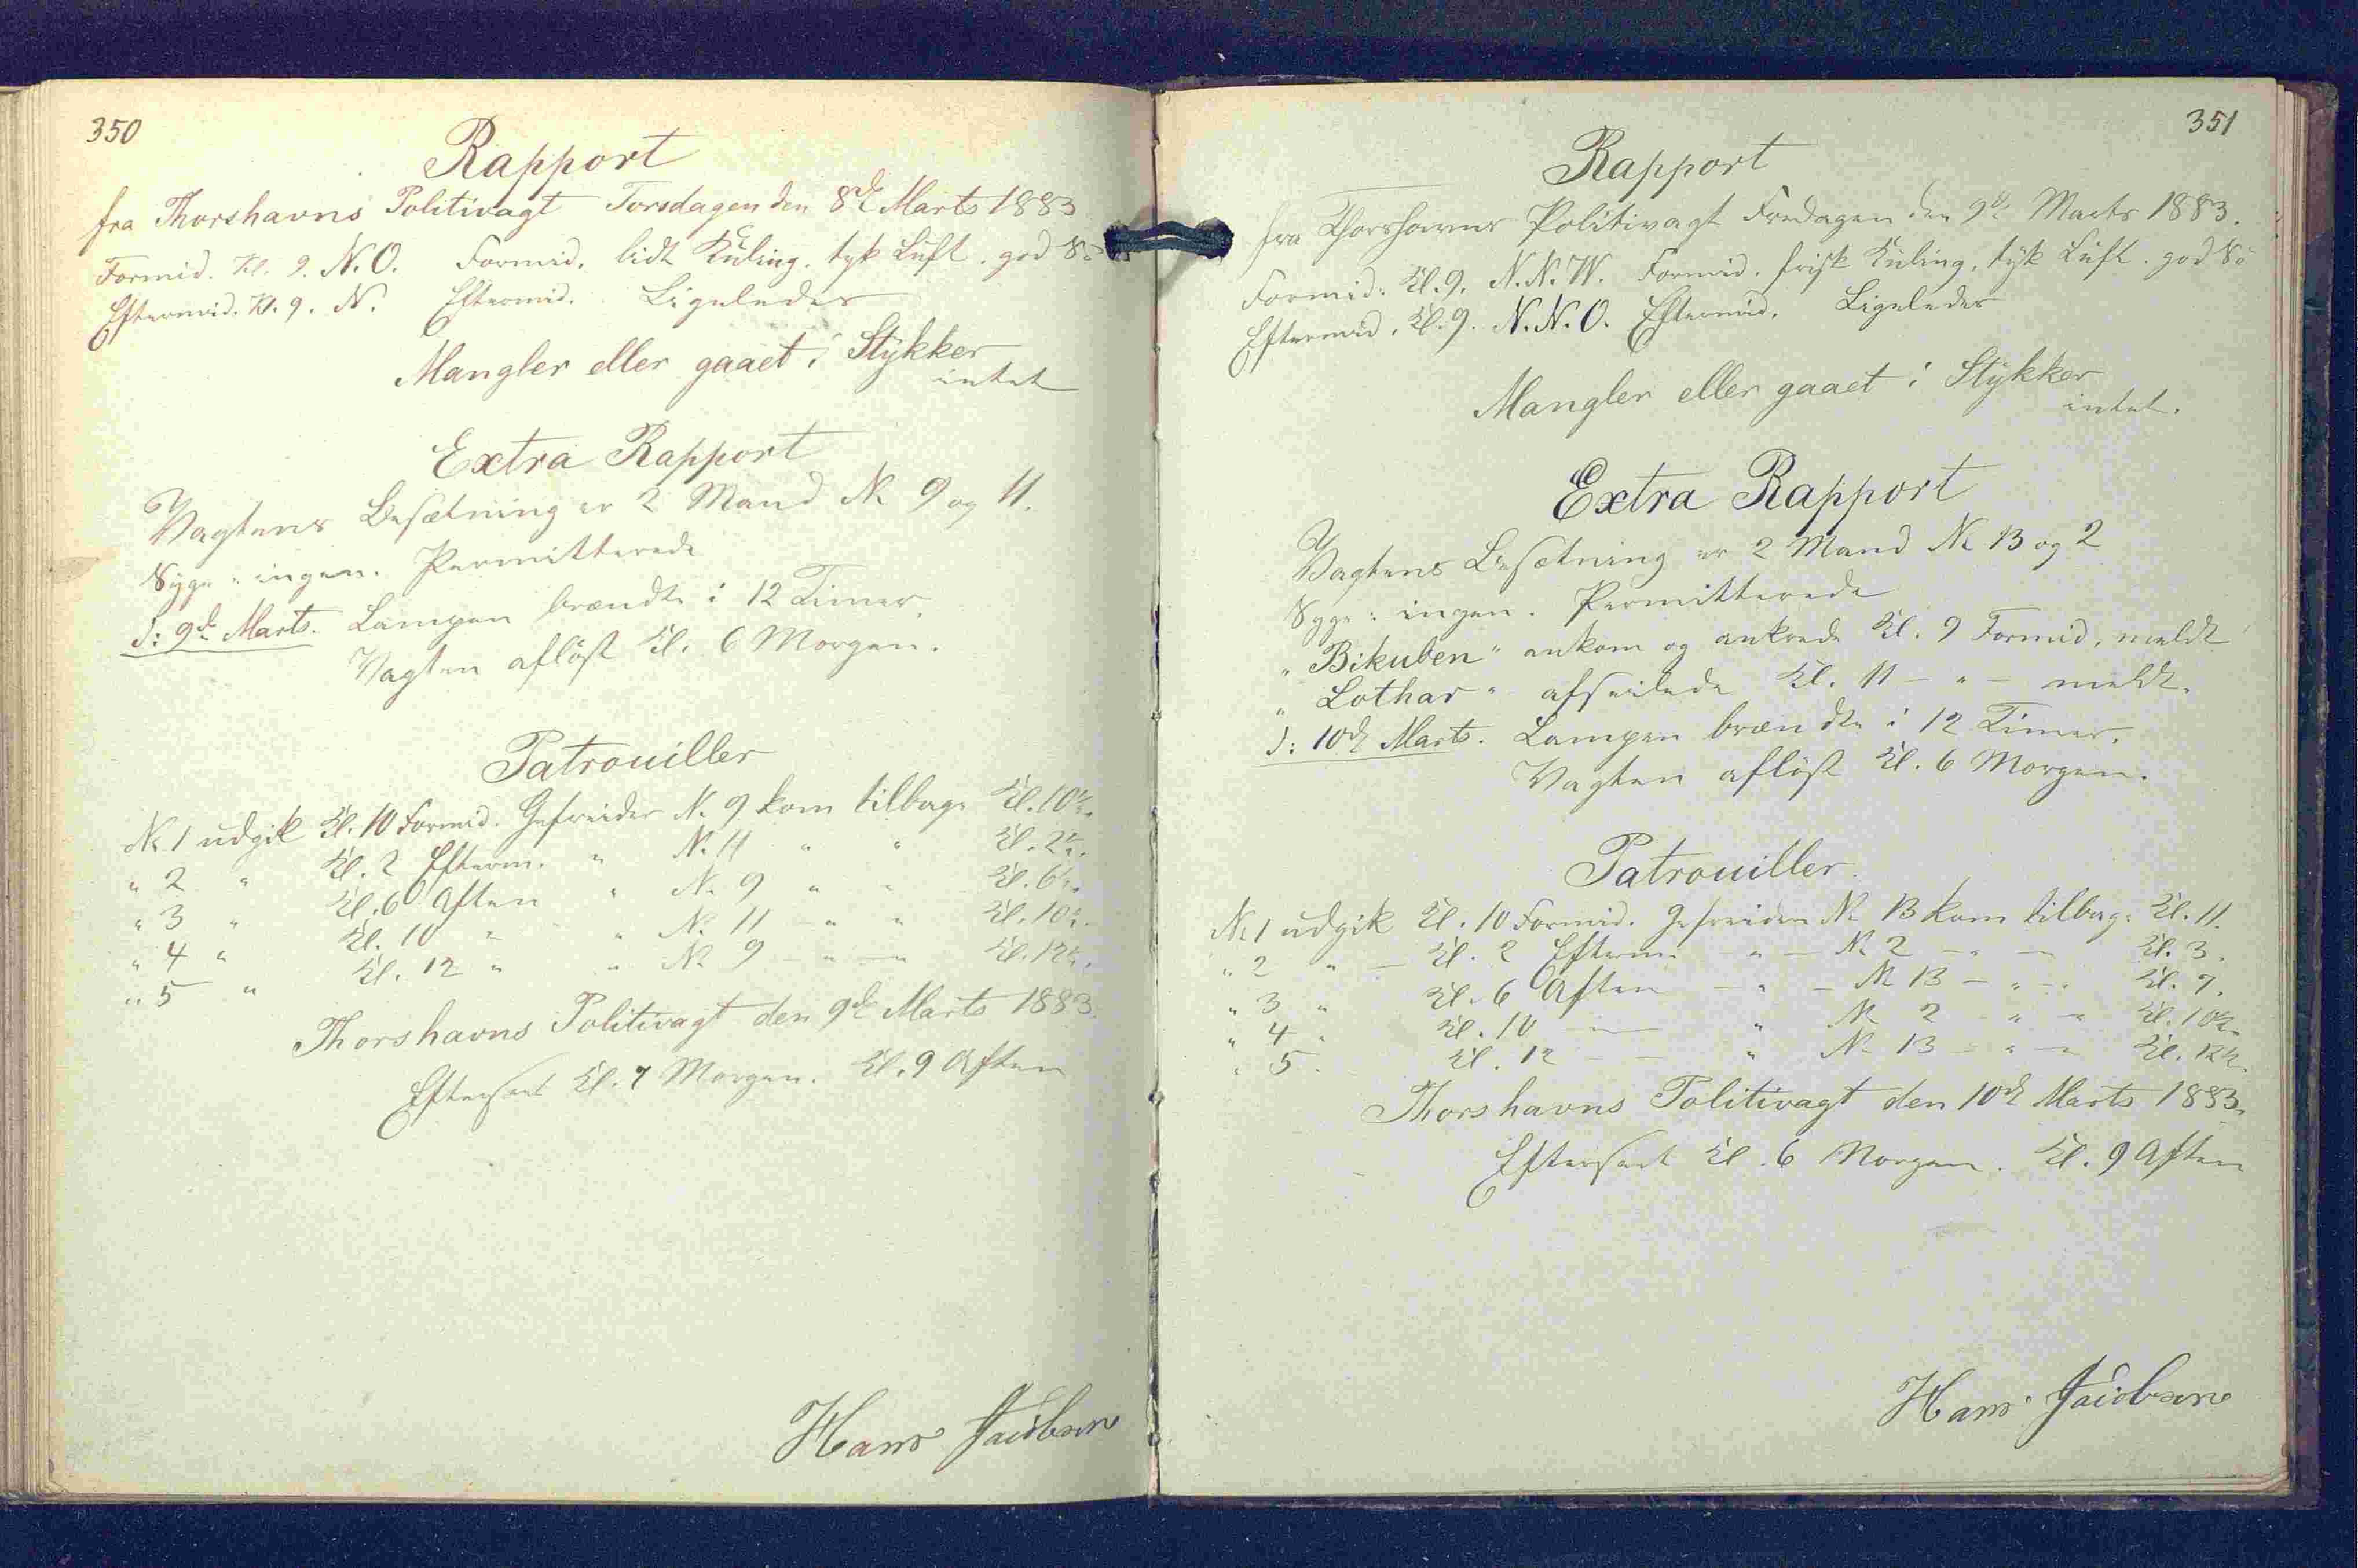 350
Rapport
fra Thorshavns Politivagt Torsdagen den 8de Marts 1883
Formid. Kl. 9. N.O. Formid. lidt Kuling. tyk Luft. god Sö
Eftermid. Kl. 9. N. Eftermid. Ligeledes
Mangler eller gaaet i Stykker
intet
Extra Rapport
Vagtens Besætning er 2 Mand No 9 og 11.
Syge: ingen. Permitterede
D: 9de Marts. Lampen brændte i 12 Timer.
Vagten aflöst Kl. 6 Morgen.
Patrouiller
No 1 udgik Kl. 10 Formid. Gefreider No 9 kom tilbage Kl. 10½.
" 2 " Kl. 2 Efterm. " No 11 " " Kl. 2½.
" 3 " Kl. 6 Aften " No 9 " " Kl. 6½.
" 4 " Kl. 10 " " No 11 " " Kl. 10½.
" 5 " Kl. 12 " " No 9 - " - Kl. 12½.
Thorshavns Politivagt den 9de Marts 1883.
Efterseet Kl. 7 Morgen. Kl. 9 Aften
Hans Jacobsen
351
Rapport
fra Thorshavns Politivagt Fredagen den 9de Marts 1883.
Formid. Kl. 9. N.N.W. Formid. frisk Kuling, tyk Luft. god Sö
Eftermid. Kl. 9. N.N.O. Eftermid. Ligeledes
Mangler eller gaaet i Stykker
intet.
Extra Rapport
Vagtens Besætning er 2 Mand No 13 og 2
Syge: ingen. Permitterede
"Bikuben" ankom og ankrede Kl. 9 Formid, meldt
"Lothar" afseilede Kl. 11 - " - meldt.
D: 10de Marts. Lampen brændte i 12 Timer.
Vagten aflöst Kl. 6 Morgen.
Patrouiller.
No 1 udgik Kl. 10 Formid. Gefreider No 13 kom tilbage Kl. 11.
" 2 " - Kl. 2 Efterm. - " - No 2 - " - Kl. 3.
" 3 " Kl. 6 Aften - " - No 13 - " - Kl. 7.
" 4 " Kl. 10 - " No 2 - " - Kl. 10½.
" 5. Kl. 12 - - " No 13 - " - Kl. 12½.
Thorshavns Politivagt den 10de Marts 1883.
Efterseet Kl. 6 Morgen. Kl. 9 Aften
Hans Jacobsen